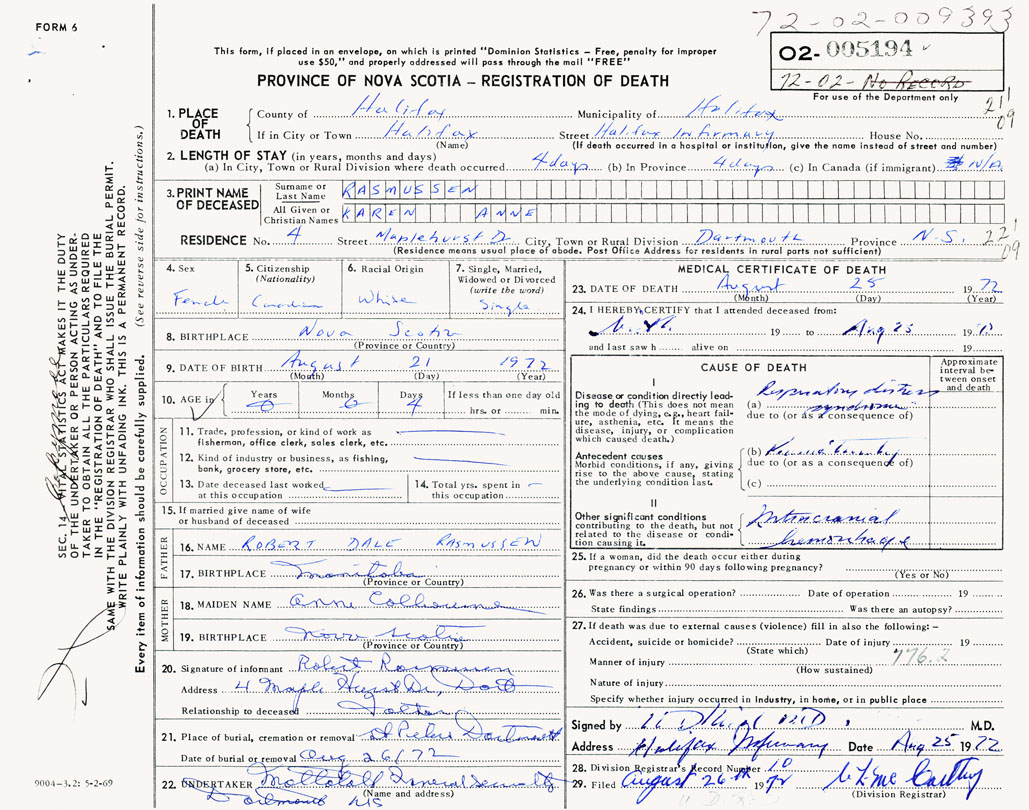 FORM 6
72-02-009393
This form, if placed in an envelope, on which is printed "Dominion Statistics — Free, penalty for improper
use $50," and properly addressed will pass through the mail "FREE"
02-005194
72-02- No RECORD
For use of the Department only
PROVINCE OF NOVA SCOTIA — REGISTRATION OF DEATH
211
09
1. PLACE OF DEATH
County of Halifax Municipality of Halifax
If in City or Town Halifax Street Halifax Infirmary House No.
(Name) (If death occurred in a hospital or institution, give the name instead of street and number)
2. LENGTH OF STAY (in years, months and days)
(a) In City, Town or Rural Division where death occurred 4 days (b) In Province 4 days (c) In Canada (if immigrant) N/A
3. PRINT NAME OF DECEASED
Surname or Last Name RASMUSSEN
All Given or Christian Names KAREN ANNE
RESIDENCE No. 4 Street Maplehurst Dr City, Town or Rural Division Dartmouth Province N.S. 221
09
(Residence means usual place of abode. Post Office Address for residents in rural parts not sufficient)
4. Sex Female
5. Citizenship (Nationality) Canadian
6. Racial Origin White
7. Single, Married, Widowed or Divorced (write the word) Single
8. BIRTHPLACE Nova Scotia
(Province or Country)
9. DATE OF BIRTH August 21 1972
(Month) (Day) (Year)
10. AGE in Years 0 Months 0 Days 4 If less than one day old
hrs. or min.
OCCUPATION
11. Trade, profession, or kind of work as
fisherman, office clerk, sales clerk, etc.
12. Kind of industry or business, as fishing,
bank, grocery store, etc.
13. Date deceased last worked
at this occupation
14. Total yrs. spent in
this occupation
15. If married give name of wife
or husband of deceased
FATHER
16. NAME ROBERT DALE RASMUSSEN
17. BIRTHPLACE Manitoba
(Province or Country)
MOTHER
18. MAIDEN NAME Anne Colhoune
19. BIRTHPLACE Nova Scotia
(Province or Country)
20. Signature of informant Robert Rasmussen
Address 4 Maple Hurst Dr, Dart
Relationship to deceased Father
21. Place of burial, cremation or removal St Peters Dartmouth
Date of burial or removal Aug 26/72
22. UNDERTAKER Funeral
(Name and address)
Dartmouth NS
MEDICAL CERTIFICATE OF DEATH
23. DATE OF DEATH August 25 1972
(Month) (Day) (Year)
24. I HEREBY CERTIFY that I attended deceased from:
19 to Aug 25 19
and last saw h alive on 19
CAUSE OF DEATH
Approximate interval between onset and death
I
Disease or condition directly leading to death (This does not mean
the mode of dying, e.g., heart failure, asthenia, etc. It means the
disease, injury, or complication
which caused death.)
(a) Respiratory distress
syndrome
due to (or as a consequence of)
Antecedent causes
Morbid conditions, if any, giving
rise to the above cause, stating
the underlying condition last.
(b)
due to (or as a consequence of)
(c)
II
Other significant conditions
contributing to the death, but not
related to the disease or condition causing it.
Intracranial
hemorrhage
25. If a woman, did the death occur either during
pregnancy or within 90 days following pregnancy?
(Yes or No)
26. Was there a surgical operation? Date of operation 19
State findings Was there an autopsy?
27. If death was due to external causes (violence) fill in also the following: —
Accident, suicide or homicide? Date of injury 19
(State which)
776.2
Manner of injury
(How sustained)
Nature of injury
Specify whether injury occurred in Industry, in home, or in public place
Signed by M.D.
Address Halifax Infirmary Date Aug 25 1972
28. Division Registrar's Record Number 10
29. Filed August 26th 1972
(Division Registrar)
SEC. 14 — VITAL STATISTICS ACT MAKES IT THE DUTY
OF THE UNDERTAKER OR PERSON ACTING AS UNDERTAKER TO OBTAIN ALL THE PARTICULARS REQUIRED
IN THE "REGISTRATION OF DEATH" AND TO FILE THE
SAME WITH THE DIVISION REGISTRAR WHO SHALL ISSUE THE BURIAL PERMIT.
WRITE PLAINLY WITH UNFADING INK. THIS IS A PERMANENT RECORD.
Every item of information should be carefully supplied. (See reverse side for instructions.)
9004-3.2: 5-2-69